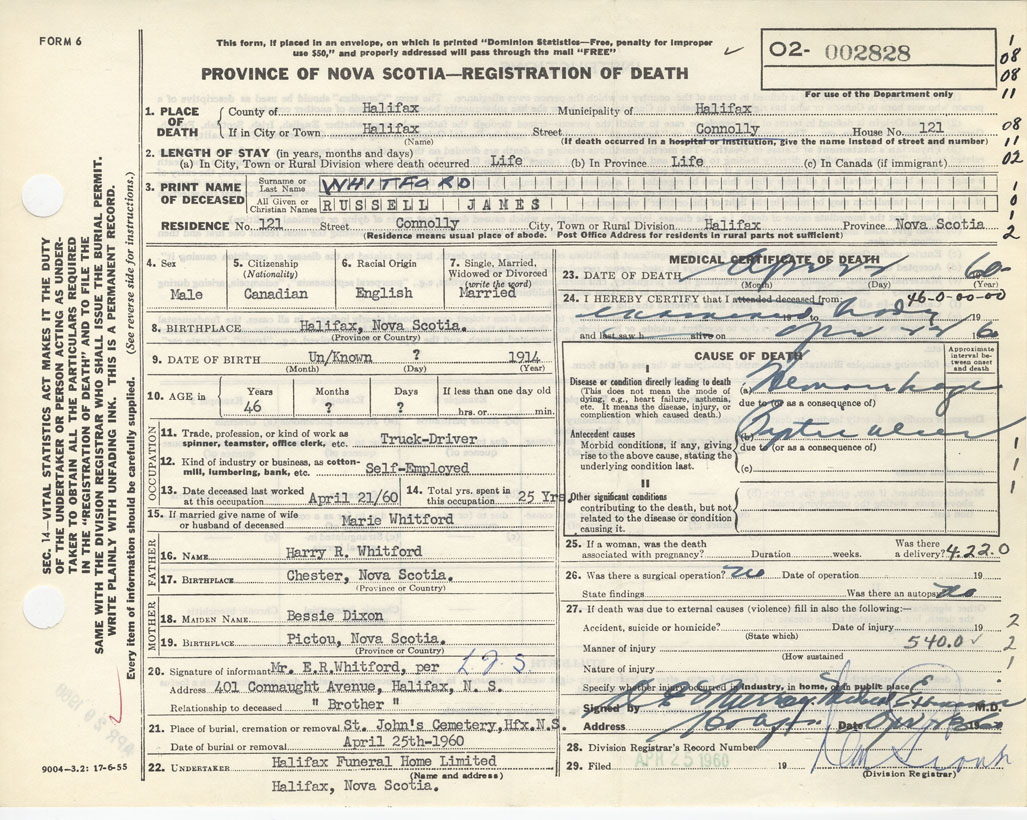 FORM 6
This form, if placed in an envelope, on which is printed "Dominion Statistics—Free, penalty for improper
use $50," and properly addressed will pass through the mail "FREE"
O2- 002828
For use of the Department only
PROVINCE OF NOVA SCOTIA—REGISTRATION OF DEATH
1. PLACE OF DEATH
County of Halifax Municipality of Halifax
If in City or Town Halifax Street Connolly House No. 121
(Name) (If death occurred in a hospital or institution, give the name instead of street and number)
2. LENGTH OF STAY (in years, months and days)
(a) In City, Town or Rural Division where death occurred Life (b) In Province Life (c) In Canada (if immigrant)
3. PRINT NAME OF DECEASED
Surname or Last Name WHITFORD
All Given or Christian Names RUSSELL JAMES
RESIDENCE No. 121 Street Connolly City, Town or Rural Division Halifax Province Nova Scotia
(Residence means usual place of abode. Post Office Address for residents in rural parts not sufficient)
1
08
08
11
08
11
02
1
0
1
2
SEC. 14—VITAL STATISTICS ACT MAKES IT THE DUTY
OF THE UNDERTAKER OR PERSON ACTING AS UNDER-
TAKER TO OBTAIN ALL THE PARTICULARS REQUIRED
IN THE "REGISTRATION OF DEATH" AND FILE THE
SAME WITH THE DIVISION REGISTRAR WHO SHALL ISSUE THE BURIAL PERMIT.
WRITE PLAINLY WITH UNFADING INK. THIS IS A PERMANENT RECORD.
Every item of information should be carefully supplied. (See reverse side for instructions.)
4. Sex
Male
5. Citizenship
(Nationality)
Canadian
6. Racial Origin
English
7. Single, Married,
Widowed or Divorced
(write the word)
Married
8. BIRTHPLACE Halifax, Nova Scotia.
(Province or Country)
9. DATE OF BIRTH Un/Known ? 1914
(Month) (Day) (Year)
10. AGE in
Years Months Days If less than one day old
46 ? ? hrs. or min.
OCCUPATION
11. Trade, profession, or kind of work as
spinner, teamster, office clerk, etc. Truck-Driver
12. Kind of industry or business, as cotton-
mill, lumbering, bank, etc. Self-Employed
13. Date deceased last worked
at this occupation April 21/60
14. Total yrs. spent in
this occupation 25 Yrs.
15. If married give name of wife
or husband of deceased Marie Whitford
FATHER
16. NAME Harry R. Whitford
17. BIRTHPLACE Chester, Nova Scotia.
(Province or Country)
MOTHER
18. MAIDEN NAME Bessie Dixon
19. BIRTHPLACE Pictou, Nova Scotia.
(Province or Country)
20. Signature of informant Mr. E.R.Whitford, per
Address 401 Connaught Avenue, Halifax, N. S.
Relationship to deceased " Brother "
21. Place of burial, cremation or removal St. John's Cemetery,Hfx.N.S.
Date of burial or removal April 25th-1960
22. UNDERTAKER Halifax Funeral Home Limited
(Name and address)
Halifax, Nova Scotia.
9004-3.2: 17-6-55
MEDICAL CERTIFICATE OF DEATH
23. DATE OF DEATH 60
(Month) (Day) (Year)
24. I HEREBY CERTIFY that I attended deceased from: 46-0-00-00
examined body 19
and last saw h alive on 19
CAUSE OF DEATH
Approximate interval between onset and death
I
Disease or condition directly leading to death
(This does not mean the mode of
dying, e.g., heart failure, asthenia,
etc. It means the disease, injury, or
complication which caused death.)
(a) Hemorrhage
due to (or as a consequence of)
Antecedent causes
Morbid conditions, if any, giving
rise to the above cause, stating the
underlying condition last.
(b) Peptic ulcer
due to (or as a consequence of)
(c)
II
Other significant conditions
contributing to the death, but not
related to the disease or condition
causing it.
1
1
1
25. If a woman, was the death
associated with pregnancy? Duration weeks. Was there
a delivery?
4.22.0
26. Was there a surgical operation? no Date of operation 19
State findings Was there an autopsy no
27. If death was due to external causes (violence) fill in also the following:—
Accident, suicide or homicide? Date of injury 19 2
(State which)
Manner of injury 540.0 2
(How sustained
Nature of injury 1
Specify whether injury occurred in industry, in home, or in public place
Signed by M.D.
Address Date 19
28. Division Registrar's Record Number
29. Filed APR 25 1960 19
(Division Registrar)